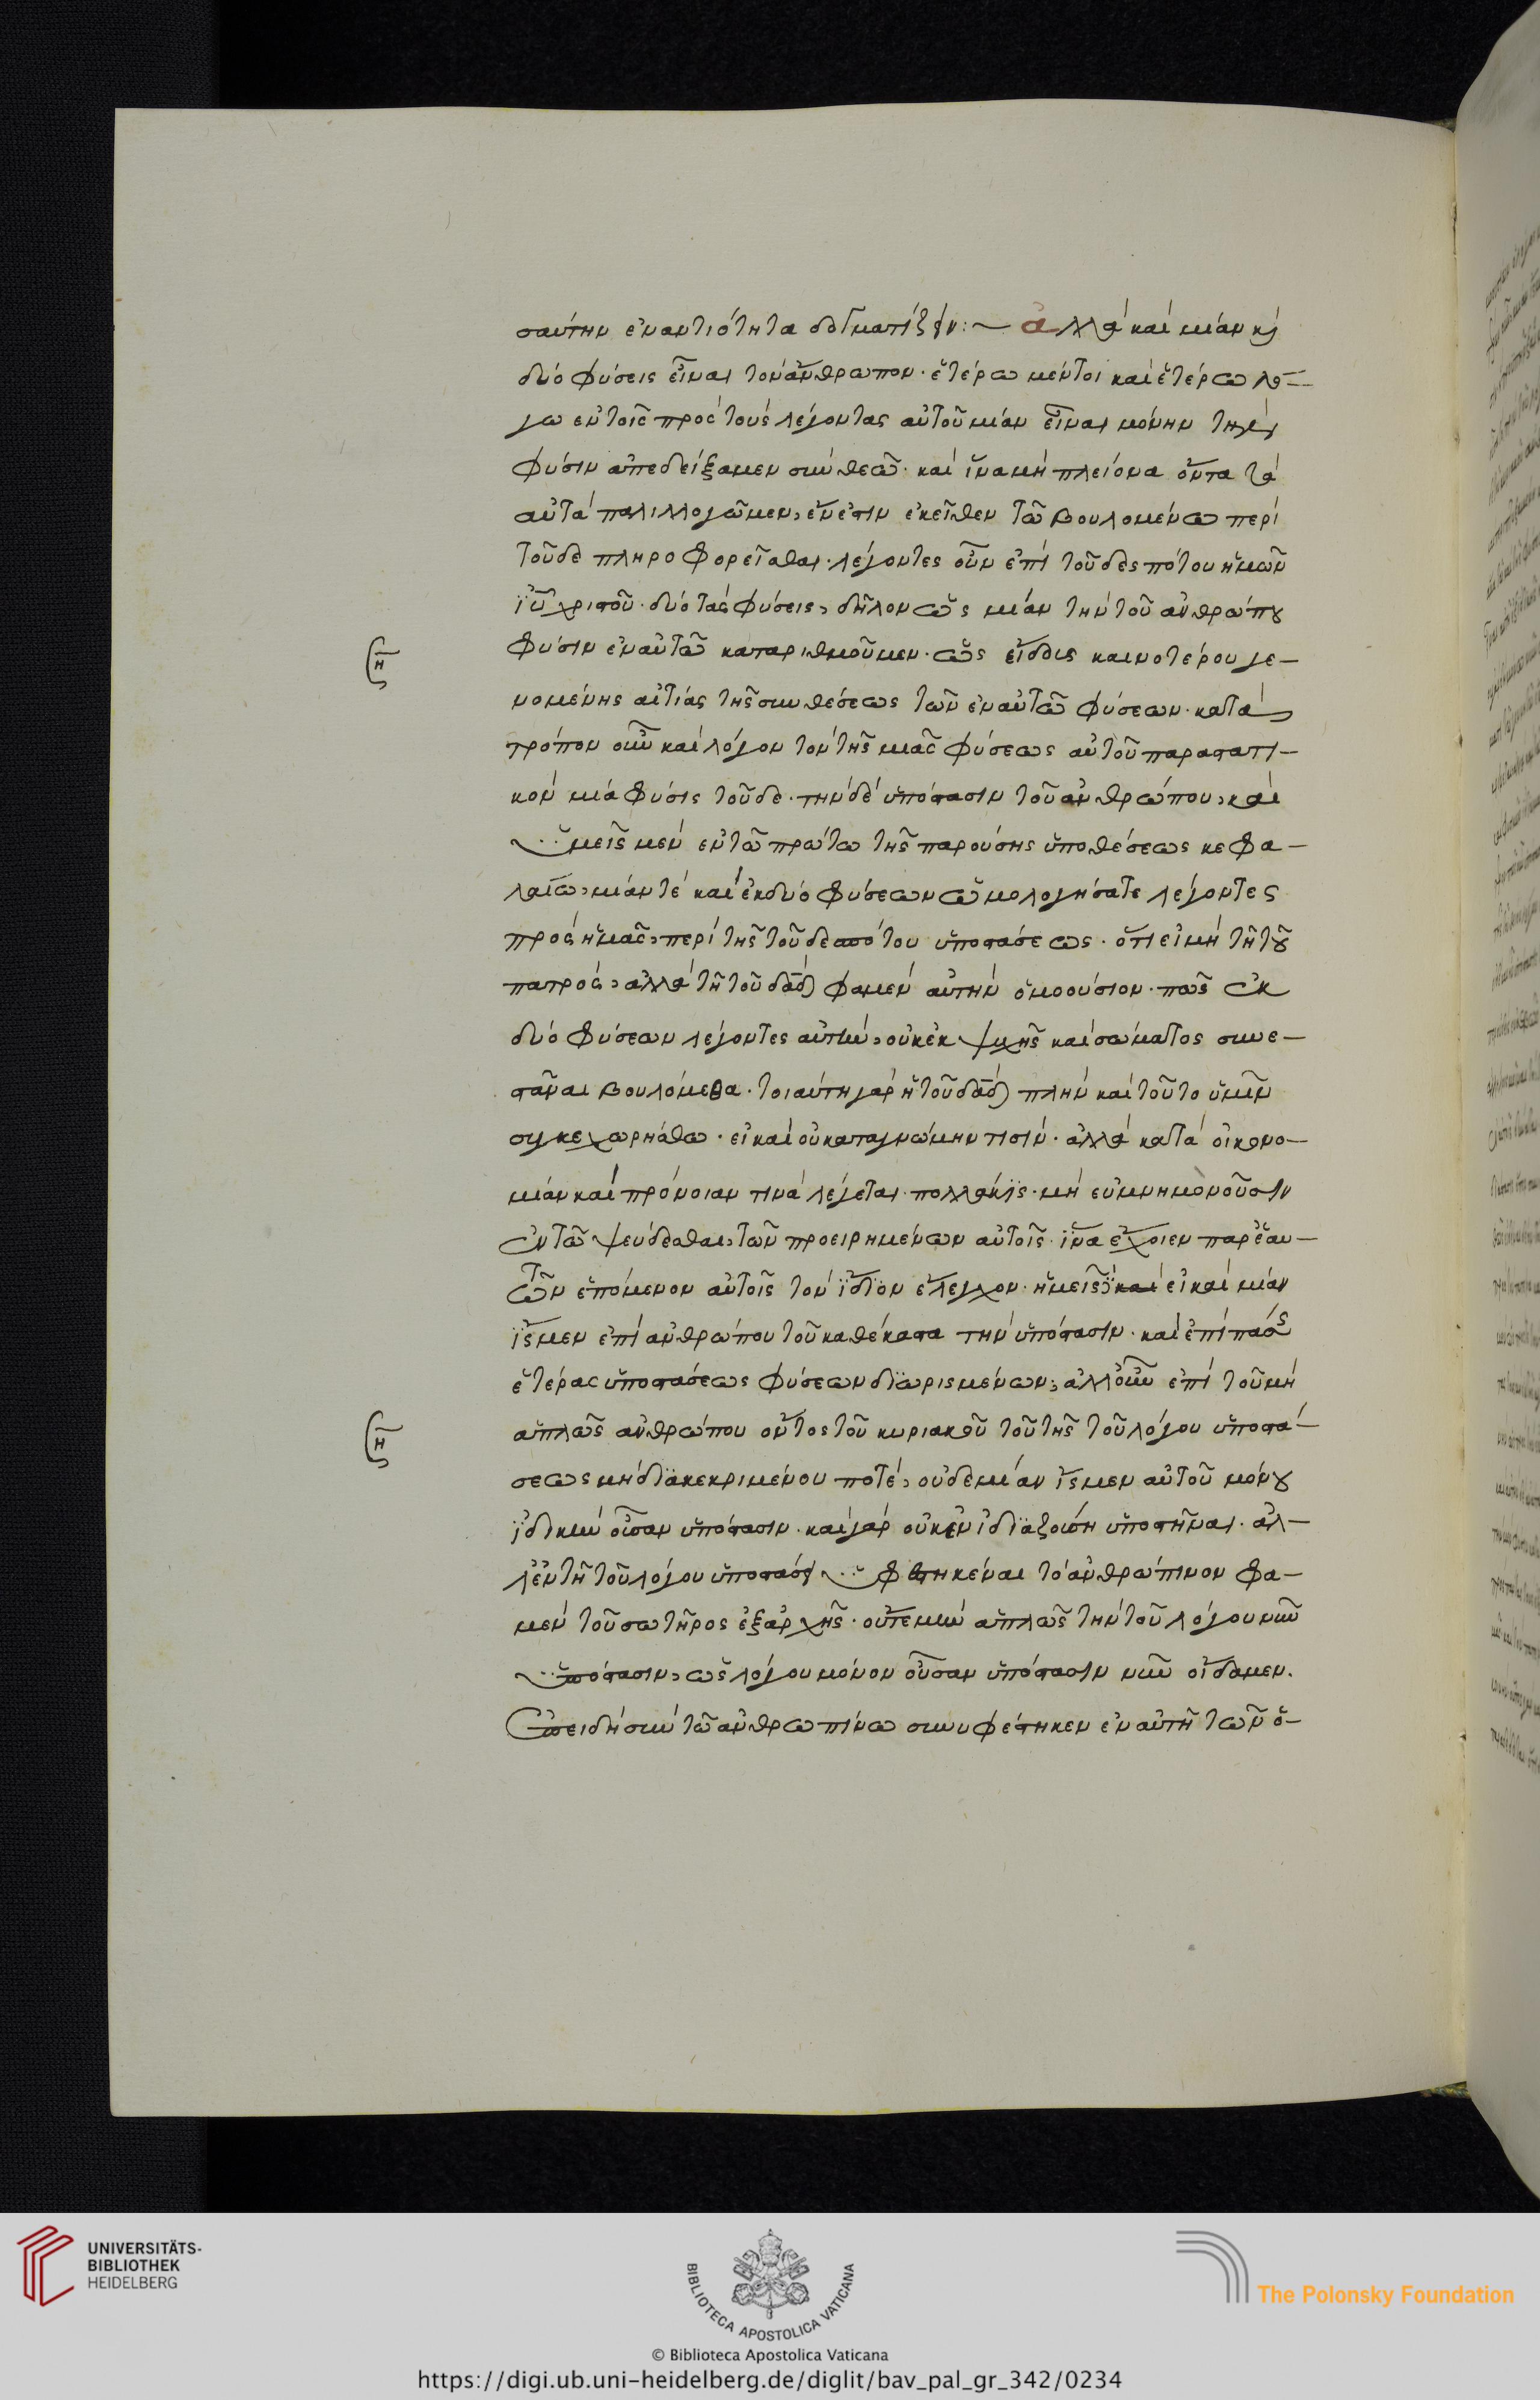 σαύτην ἐναντιότητα δογματίζειν:~ Ἀλλὰ καὶ μίαν κὶ
δύο φύσεις εἶναι τὸν ἄνθρωπον· ἑτέρω μέντοι καὶ ἑτέρω λό-
γω ἐν τοῖς πρὸς τοὺς λέγοντας αὐτοῦ μίαν εἶναι μόνην τὴν
φύσιν ἀπεδείξαμεν σὺν θεῶ· καὶ ἵνα μὴ πλείονα ὄντα τὰ
αὐτὰ παλιλλογῶμεν, ἔνεστιν ἐκεῖθεν τῶ βουλομένω περὶ
τοῦδε πληροφορεῖσθαι· λέγοντες οὖν ἐπὶ τοῦ δεσπότου ἡμῶν
ἰῦ χριστοῦ· δύο τὰς φύσεις, δῆλον ὡς μίαν τὴν τοῦ ἀνθρώπου
φύσιν ἐν αὐτῶ καταριθμοῦμεν· ὡς εἴδους καινοτέρου γε-
νομένης αἰτίας τῆς συνθέσεως τῶν ἐν αὐτῶ φύσεων· κατὰ
τρόπον οὖν καὶ λόγον τὸν τῆς μιᾶς φύσεως αὐτοῦ παραστατι-
κὸν μία φύσις τοῦδε· τὴν δὲ ὑπόστασιν τοῦ ἀνθρώπου, καὶ
ὑμεῖς μὲν ἐν τῶ πρώτω τῆς παρούσης ὑποθέσεως κεφα-
λαίω, μίαν τὲ καὶ ἐκ δύο φύσεων ὡμολογήσατε λέγοντες
πρὸς ἡμᾶς, περὶ τῆς τοῦ δεσπότου ὑποστάσεως· ὅτι εἰ μὴ τῆ τοῦ
πατρὸς, ἀλλὰ τῆ τοῦ δᾱδ φαμὲν αὐτὴν ὁμοούσιον· πῶς ἐκ
δύο φύσεων λέγοντες αὐτὴν, οὐκ ἐκ ψυχῆς καὶ σώματος συνε-
στάναι βουλόμεθα· τοιαύτη γὰρ ἡ τοῦ δᾱδ πλὴν καὶ τοῦτο ὑμῖν
συγκεχωρήσθω· εἰ καὶ οὐ καταγνώμην τισὶν· ἀλλὰ κατὰ οἰκονο-
μίαν καὶ πρόνοιαν τινὰ λέγεται πολλάκϊς· μὴ εὐμνημονοῦσιν
ἐν τῶ ψεύδεσθαι, τῶν προειρημένων αὐτοῖς· ἵνα ἔχοιεν παρ' ἑαυ-
τῶν ἑπόμενον αὐτοῖς τὸν ἴδϊον ἔλεγχον· ἡμεῖς, καὶ εἰ καὶ μίαν
ἴσμεν ἐπὶ ἀνθρώπου τοῦ καθέκαστα τὴν ὑπόστασιν· καὶ ἐπὶ πάσης
ἑτέρας ὑποστάσεως φύσεων δϊωρισμένων, ἀλλ' οὖν ἐπὶ τοῦ μὴ
ἁπλῶς ἀνθρώπου ὄντος τοῦ κυριακοῦ τοῦ τῆς τοῦ λόγου ὑποστά-
σεως μὴ δϊακεκριμένου ποτὲ, οὐδεμίαν ἴσμεν αὐτοῦ μόνου
ἰδικὴν οὖσαν ὑπόστασιν· καὶ γὰρ οὐκ ἐν ἰδϊαζούση ὑποστῆναι· ἀλ-
λ' ἐν τῆ τοῦ λόγου ὑποστάσει ὑφεστηκέναι τὸ ἀνθρώπινον φα-
μὲν τοῦ σωτῆρος ἐξ ἀρχῆς· οὔτε μὴν ἁπλῶς τὴν τοῦ λόγου νῦν
ὑπόστασιν, ὡς λόγου μόνον οὖσαν ὑπόστασιν νῦν οἴδαμεν.
Ἐπειδὴ σὺν τῶ ἀνθρωπίνω συνυφέστηκεν ἐν αὐτῆ τῶν ὅ-
η
η
UNIVERSITÄTS-
BIBLIOTHEK
HEIDELBERG
BIBLIOTECA APOSTOLICA VATICANA
The Polonsky Foundation
© Biblioteca Apostolica Vaticana
https://digi.ub.uni-heidelberg.de/diglit/bav_pal_gr_342/0234